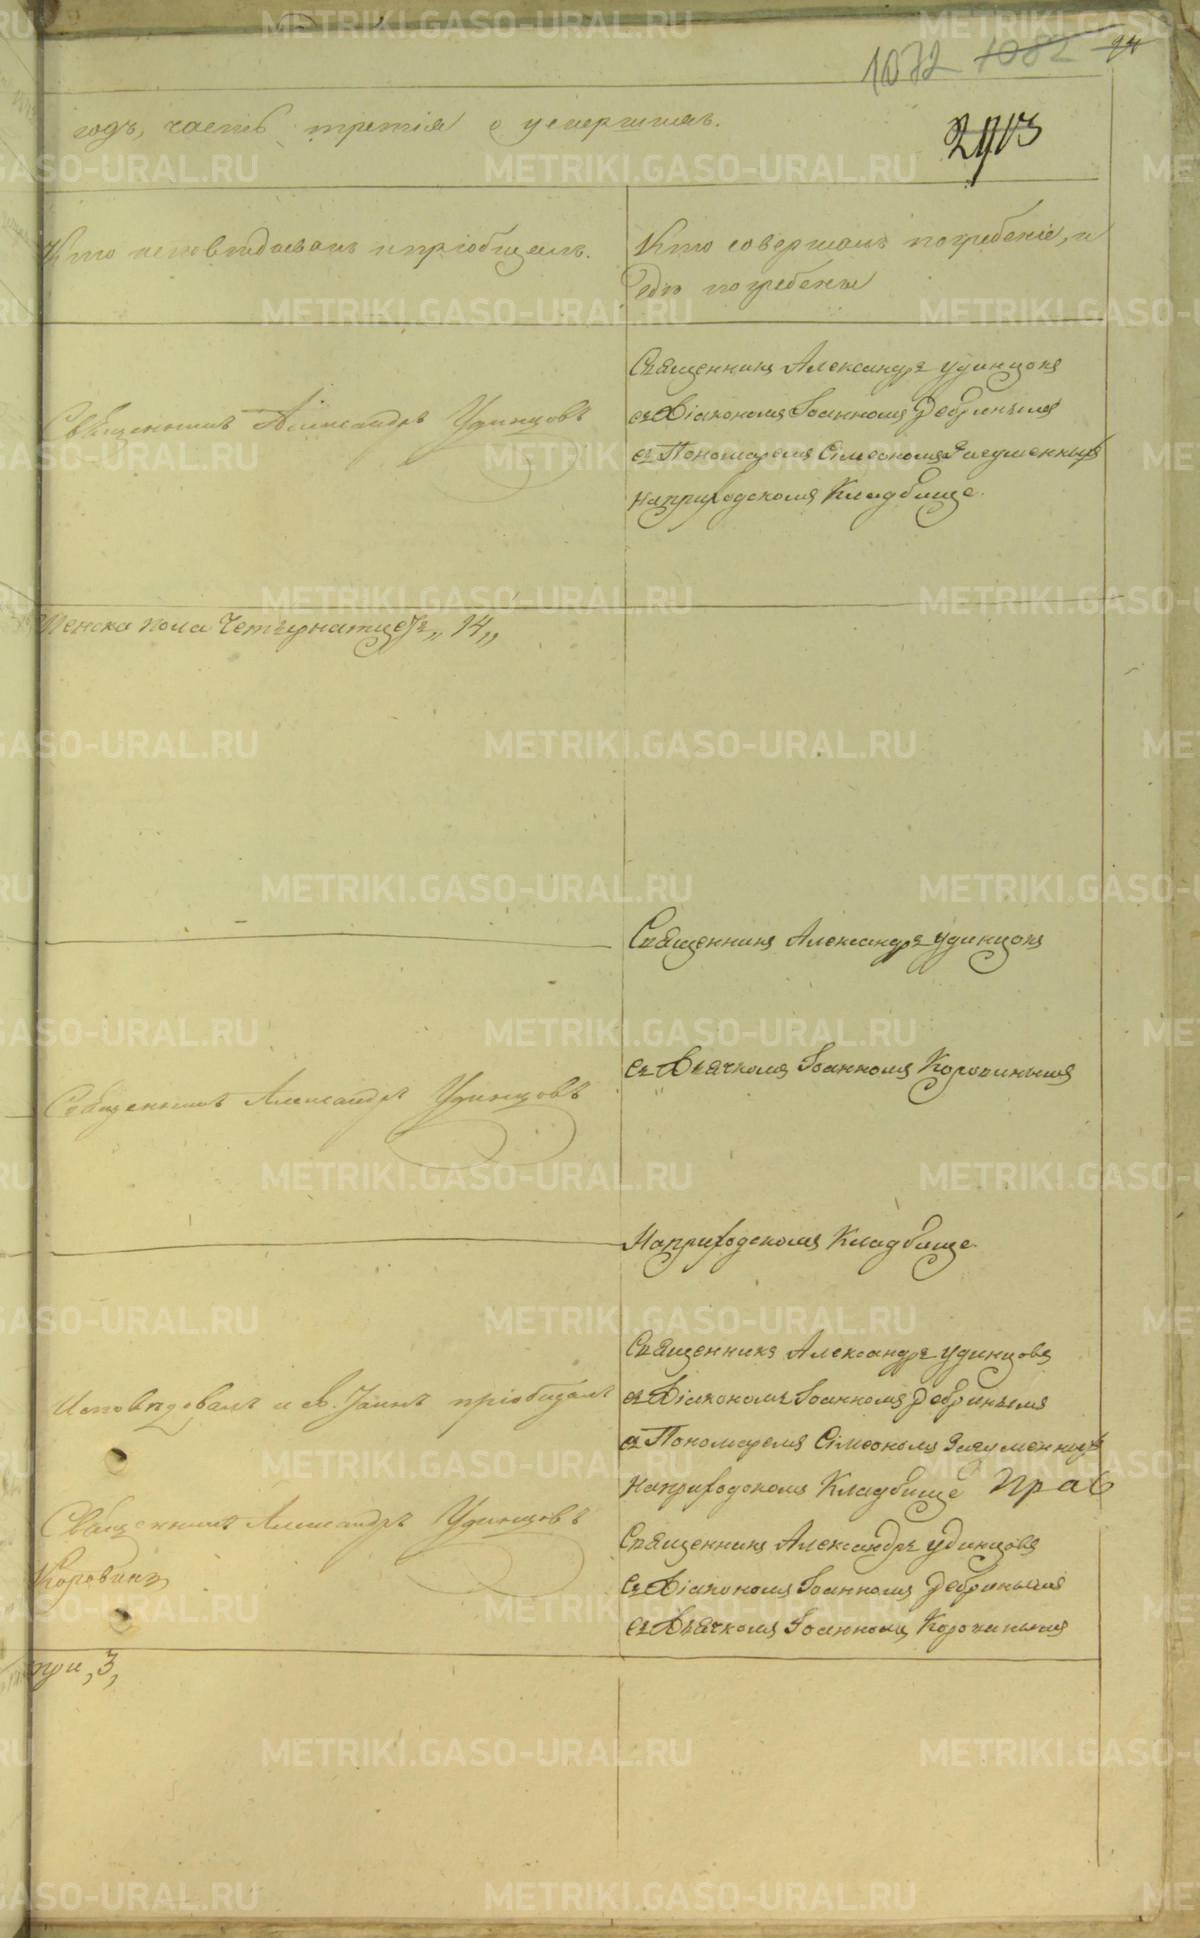 1072 1082 94
годъ, часть третія о умершихъ.
2903
Кто исповѣдывалъ и пріобщалъ.
Кто совершалъ погребеніе, и
гдѣ погребены
Священникъ Александръ Удинцовъ
Священникъ Александръ Удинцовъ
съ Діакономъ Іоанномъ Дебринымъ
съ Пономаремъ Сімеономъ Загуменныхъ
на приходскомъ Кладбище.
Женска пола Четырнатцеть „14„
Священникъ Александръ Удинцовъ
съ Дьячкомъ Іоанномъ Коровинымъ
Священникъ Александръ Удинцовъ
На приходскомъ Кладбище
Священникъ Александръ Удинцовъ
Исповѣдовалъ и св. Таинъ пріобщалъ
съ Діакономъ Іоанномъ Дебринымъ
съ Пономаремъ Сімеономъ Загуменныхъ
на приходскомъ Кладбище Прав
Священникъ Александръ Удинцовъ
Священникъ Александръ Удинцовъ
Коровинъ
съ Діакономъ Іоанномъ Дебринымъ
съ Дьячкомъ Іоанномъ Коровинымъ
три „3„
METRIKI.GASO-URAL.RU